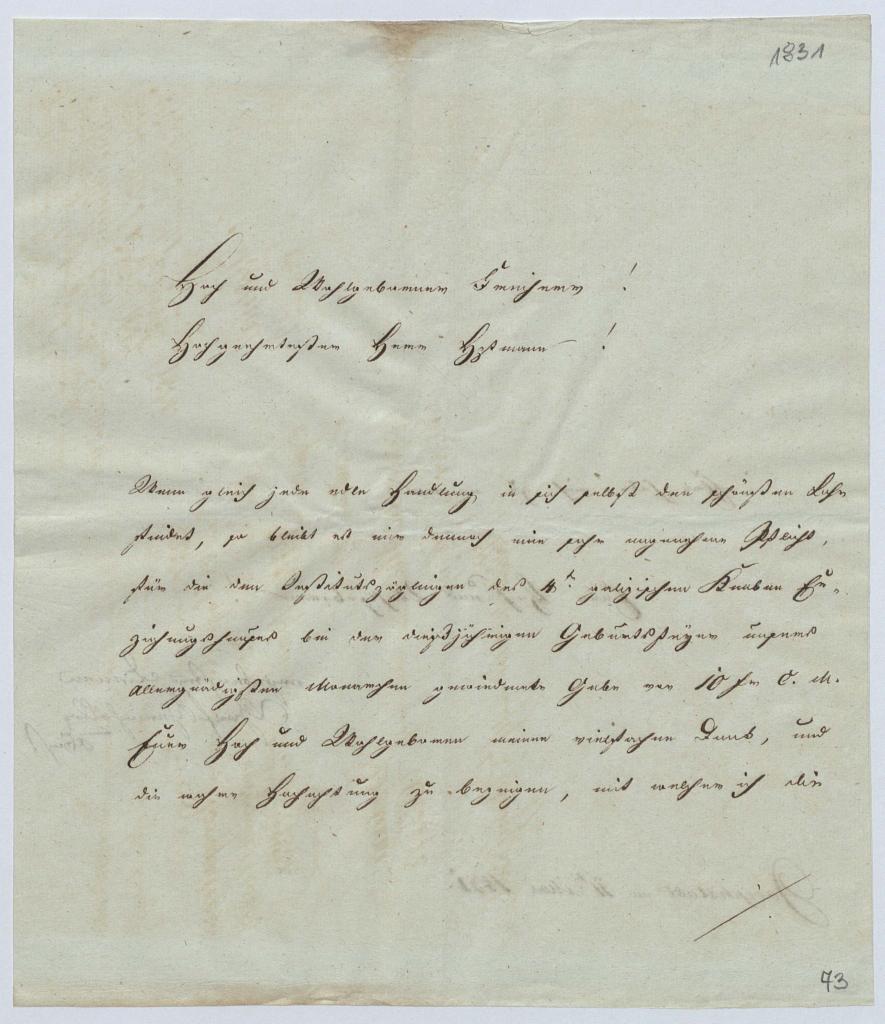 1831
Hoch und Wohlgeborner Freiherr !
Hochgeehrtester Herr Hptmann !
Wenn gleich jede edle Handlung in sich selbst den schönsten Lohn
findet, so bleibt es mir dennoch eine sehr angenehme Pflicht,
für die den Institutszöglingen des 4t. galizischen Knaben Er-
ziehungshauses bei der dießjährigen Geburtsfeyer unseres
Allergnädigsten Monarchen gewiedmete Gabe von 10 fr C. M.
Euer Hoch und Wohlgeboren meinen vielfachen Dank, und
die wahre Hochachtung zu bezeigen, mit welcher ich die
73